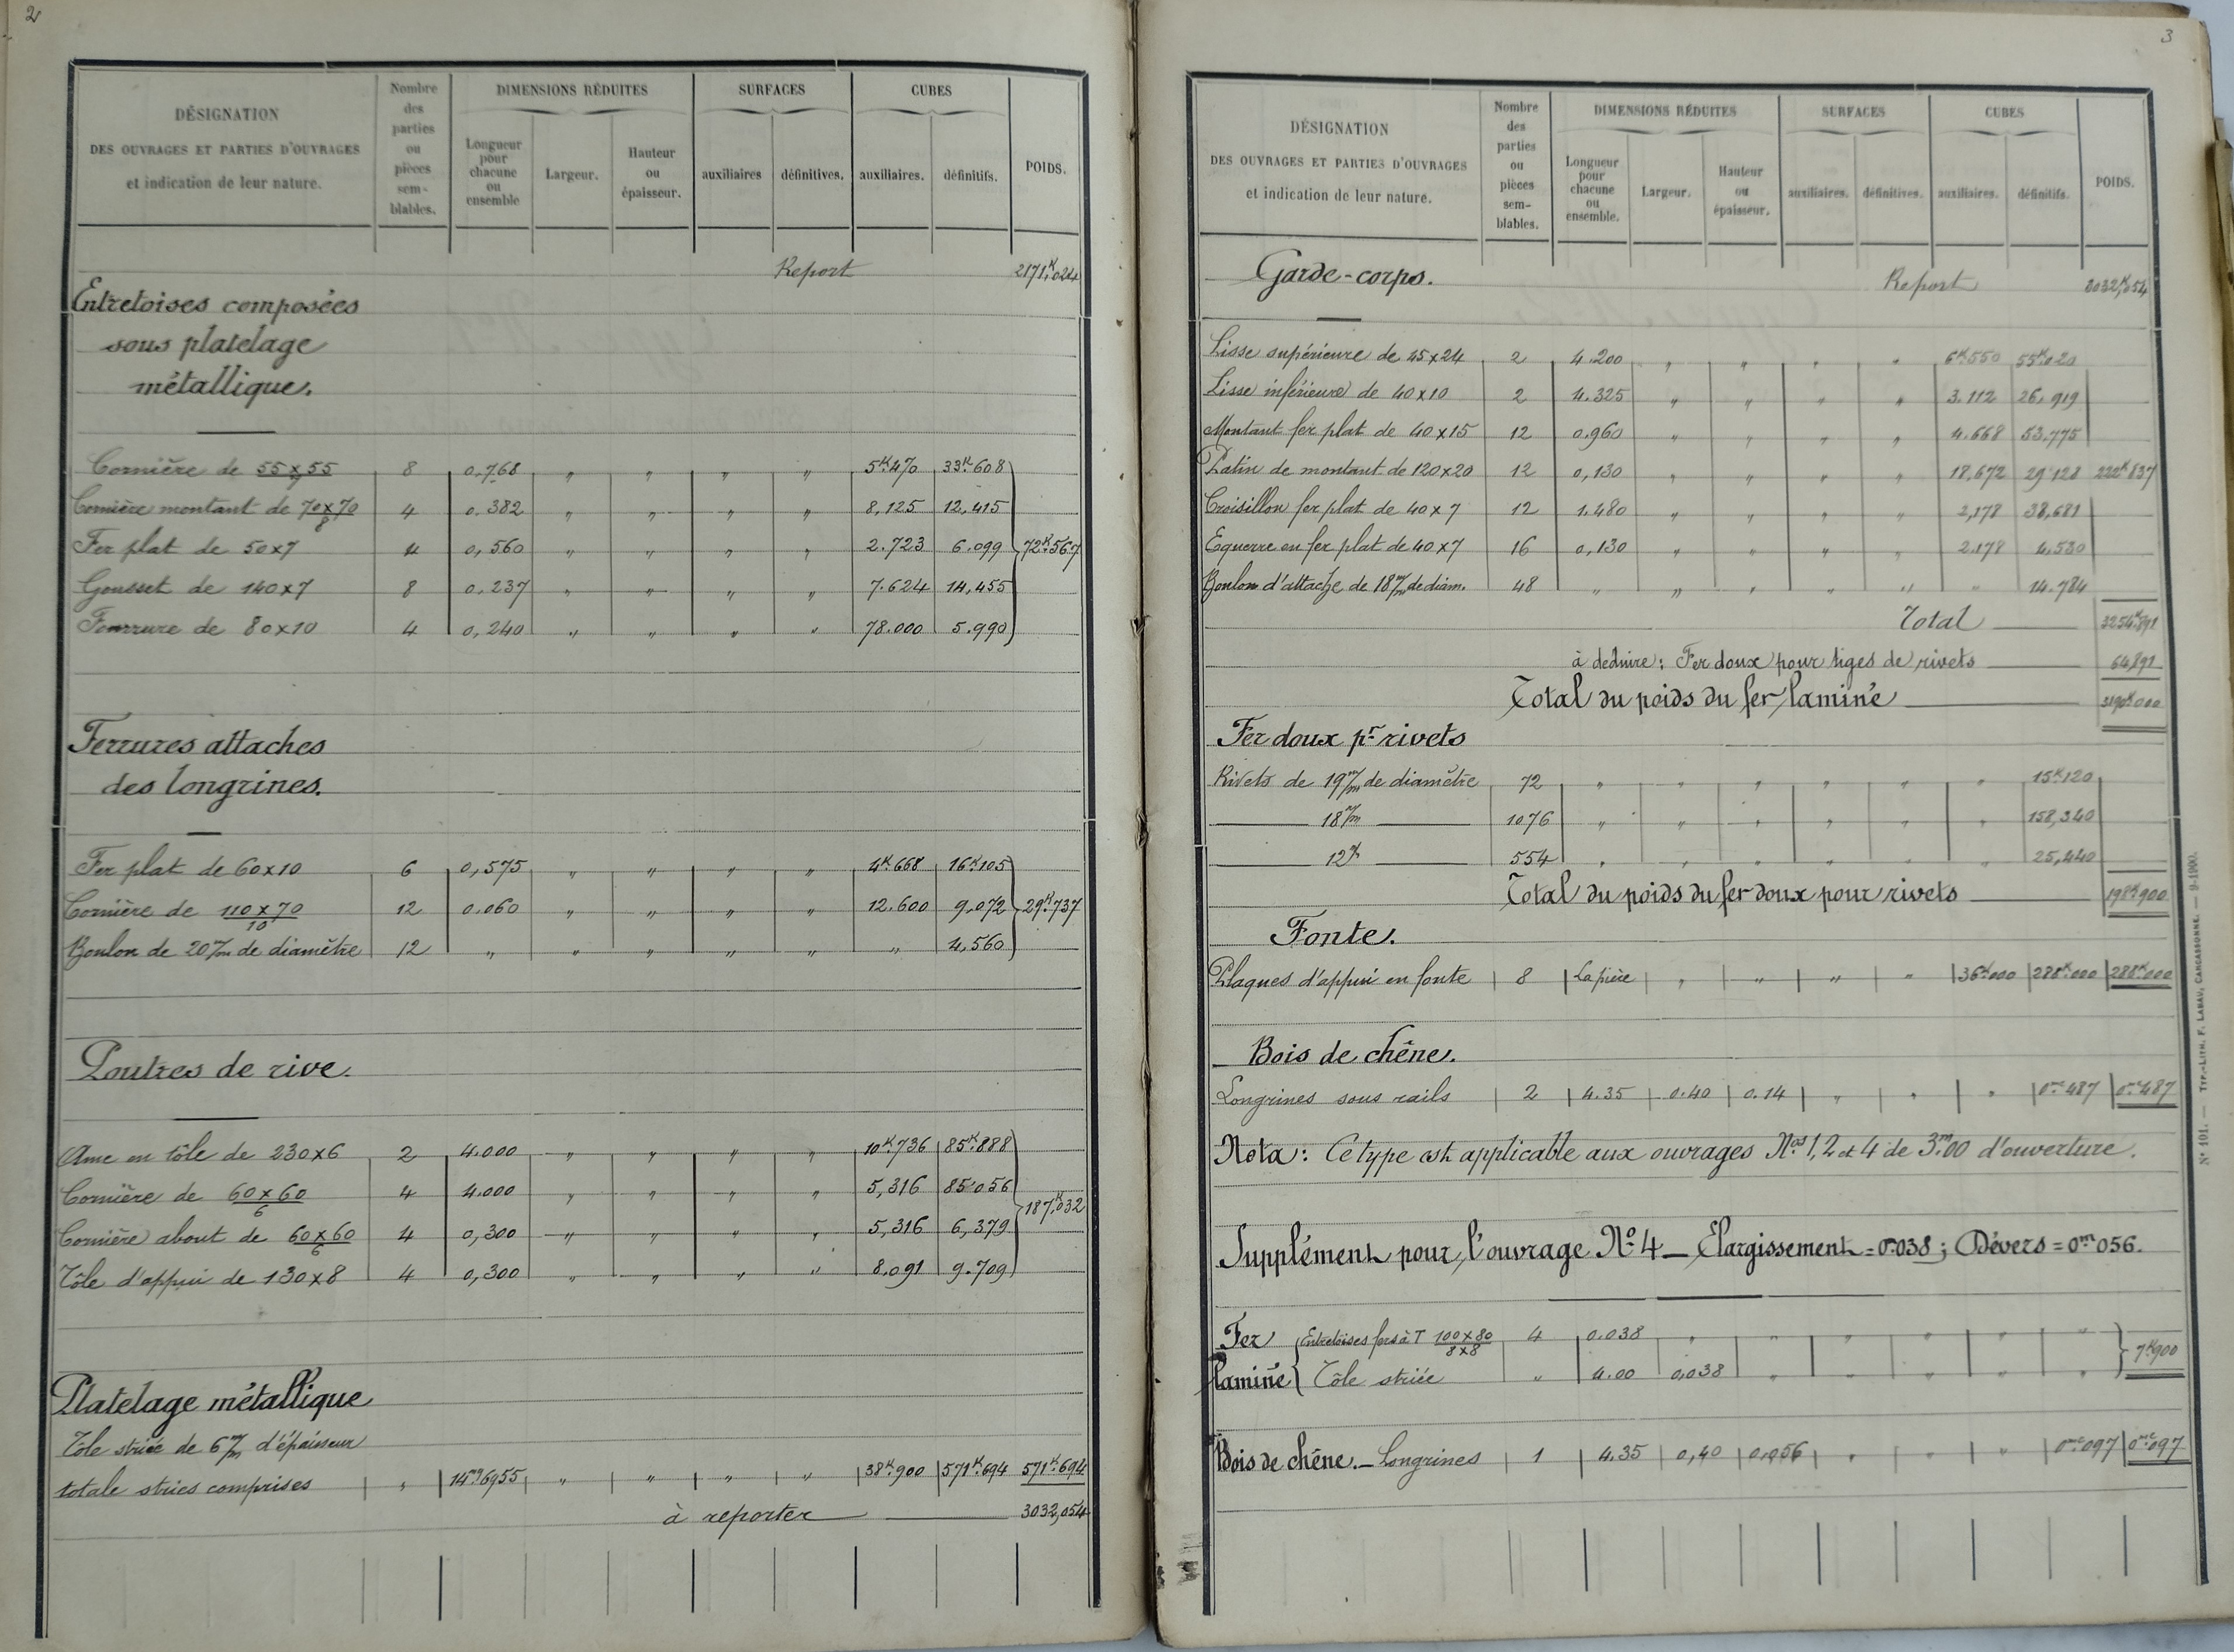 2
DÉSIGNATION
DES OUVRAGES ET PARTIES D'OUVRAGES
et indication de leur nature.
Nombre
des
parties
ou
pièces
sem-
blables.
DIMENSIONS RÉDUITES
Longueur
pour
chacune
ou
ensemble
Largeur.
Hauteur
ou
épaisseur.
SURFACES
auxiliaires
définitives.
CUBES
auxiliaires.
définitifs.
POIDS.
Report 2171K,024
Entretoises composées
sous platelage
métallique.
Cornière de 55x55/7 8 0.768 " " " " 5K470 33K608
Cornière montant de 70x70/8 4 0.382 " " " " 8,125 12.415
Fer plat de 50x7 4 0,560 " " " " 2.723 6.099 72K567
Gousset de 140x7 8 0.237 " " " " 7.624 14.455
Fourrure de 80x10 4 0,240 " " " " 78.000 5.990
Ferrures attaches
des longrines.
Fer plat de 60x10 6 0,575 " " " " 4K668 16K105
Cornière de 110x70/10 12 0.060 " " " " 12.600 9.072 29K737
Boulon de 20m/m de diamètre 12 " " " " " " 4,560
Poutres de rive.
Ame en tôle de 230x6 2 4.000 " " " " 10K736 85K888
Cornière de 60x60/6 4 4.000 " " " " 5,316 85.056 187K,032
Cornière about de 60x60/6 4 0,300 " " " " 5,316 6,379
Tôle d'appui de 130x8 4 0,300 " " " " 8.091 9.709
Platelage métallique
Tôle striée de 6m/m d'épaisseur
totale stries comprises " 14mq6955 " " " " 38K900 571K694 571K694
à reporter 3032,054
3
DÉSIGNATION
DES OUVRAGES ET PARTIES D'OUVRAGES
et indication de leur nature.
Nombre
des
parties
ou
pièces
sem-
blables.
DIMENSIONS RÉDUITES
Longueur
pour
chacune
ou
ensemble.
Largeur.
Hauteur
ou
épaisseur.
SURFACES
auxiliaires.
définitives.
CUBES
auxiliaires.
définitifs.
POIDS.
Garde-corps. Report 3032K,054
Lisse supérieure de 45x24 2 4.200 " " " " 6K550 55K020
Lisse inférieure de 40x10 2 4.325 " " " " 3.112 26.919
Montant fer plat de 40x15 12 0.960 " " " " 4.668 53.775
Patin de montant de 120x20 12 0,130 " " " " 18,672 29.128 222K837
Croisillon fer plat de 40x7 12 1.480 " " " " 2,178 38,681
Equerre en fer plat de 40x7 16 0,130 " " " " 2.178 4.530
Boulon d'attache de 18m/m de diam. 48 " " " " " " 14.784
Total 3254K891
à déduire: Fer doux pour tiges de rivets 64,891
Total du poids du fer laminé 3190K000
Fer doux pr rivets
Rivets de 19m/m de diamètre 72 " " " " " " 15K120
18m/m 1076 " " " " " " 158,340
12m/m 554 " " " " " " 25,440
Total du poids du fer doux pour rivets 198K900
Fonte.
Plaques d'appui en fonte 8 La pièce " " " " 36K000 288K000 288K000
Bois de chêne.
Longrines sous rails 2 4.35 0.40 0.14 " " " 0mc487 0mc487
Nota: Ce type est applicable aux ouvrages Nos 1, 2 et 4 de 3m00 d'ouverture.
Supplément pour l'ouvrage No 4 — Elargissement = 0m038; Dévers = 0m056.
Fer Entretoises fers à T 100x80/8x8 4 0.038 " " " " " "
laminé Tôle striée " 4.00 0,038 " " " " " 7K900
Bois de chêne. — Longrines 1 4.35 0,40 0,056 " " " 0mc097 0mc097
No 101. — Typ.-Lith. F. LABAU, CARCASSONNE. — 9-1900.